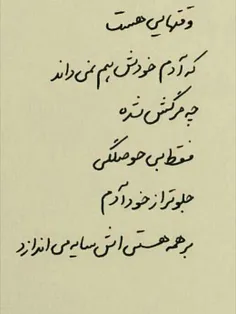 وقتهایی هست
که آدم خودش هم نمی داند
چه مرگش شده
فقط بی حوصلگی
جلوتر از خود آدم
بر همه هستی اش سایه می اندازد